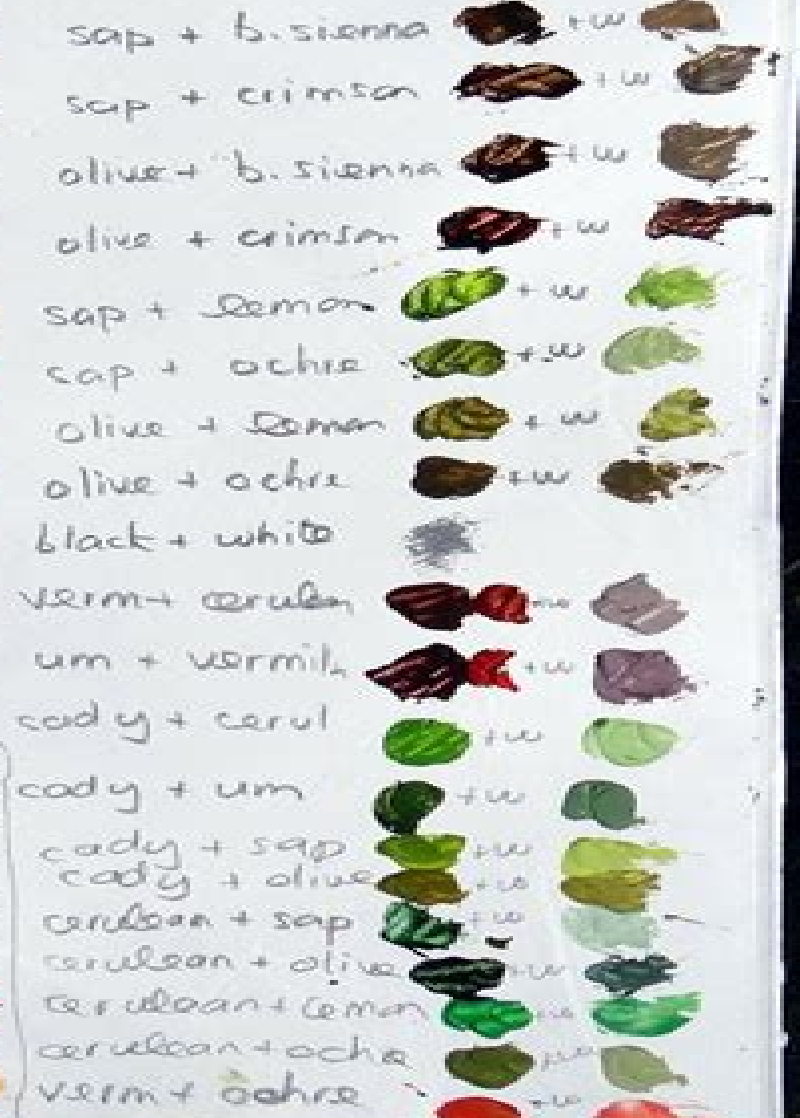 sap + b.sienna +w
sap + crimson +w
olive + b.sienna +w
olive + crimson +w
sap + lemon +w
sap + ochre +w
olive + lemon +w
olive + ochre +w
black + white
verm + cerulean
um + vermil +w
cad y + cerul +w
cad y + um +w
cad y + sap +w
cad y + olive +w
cerulean + sap +w
cerulean + olive +w
cerulean + lemon +w
cerulean + ochre +w
verm + ochre +w